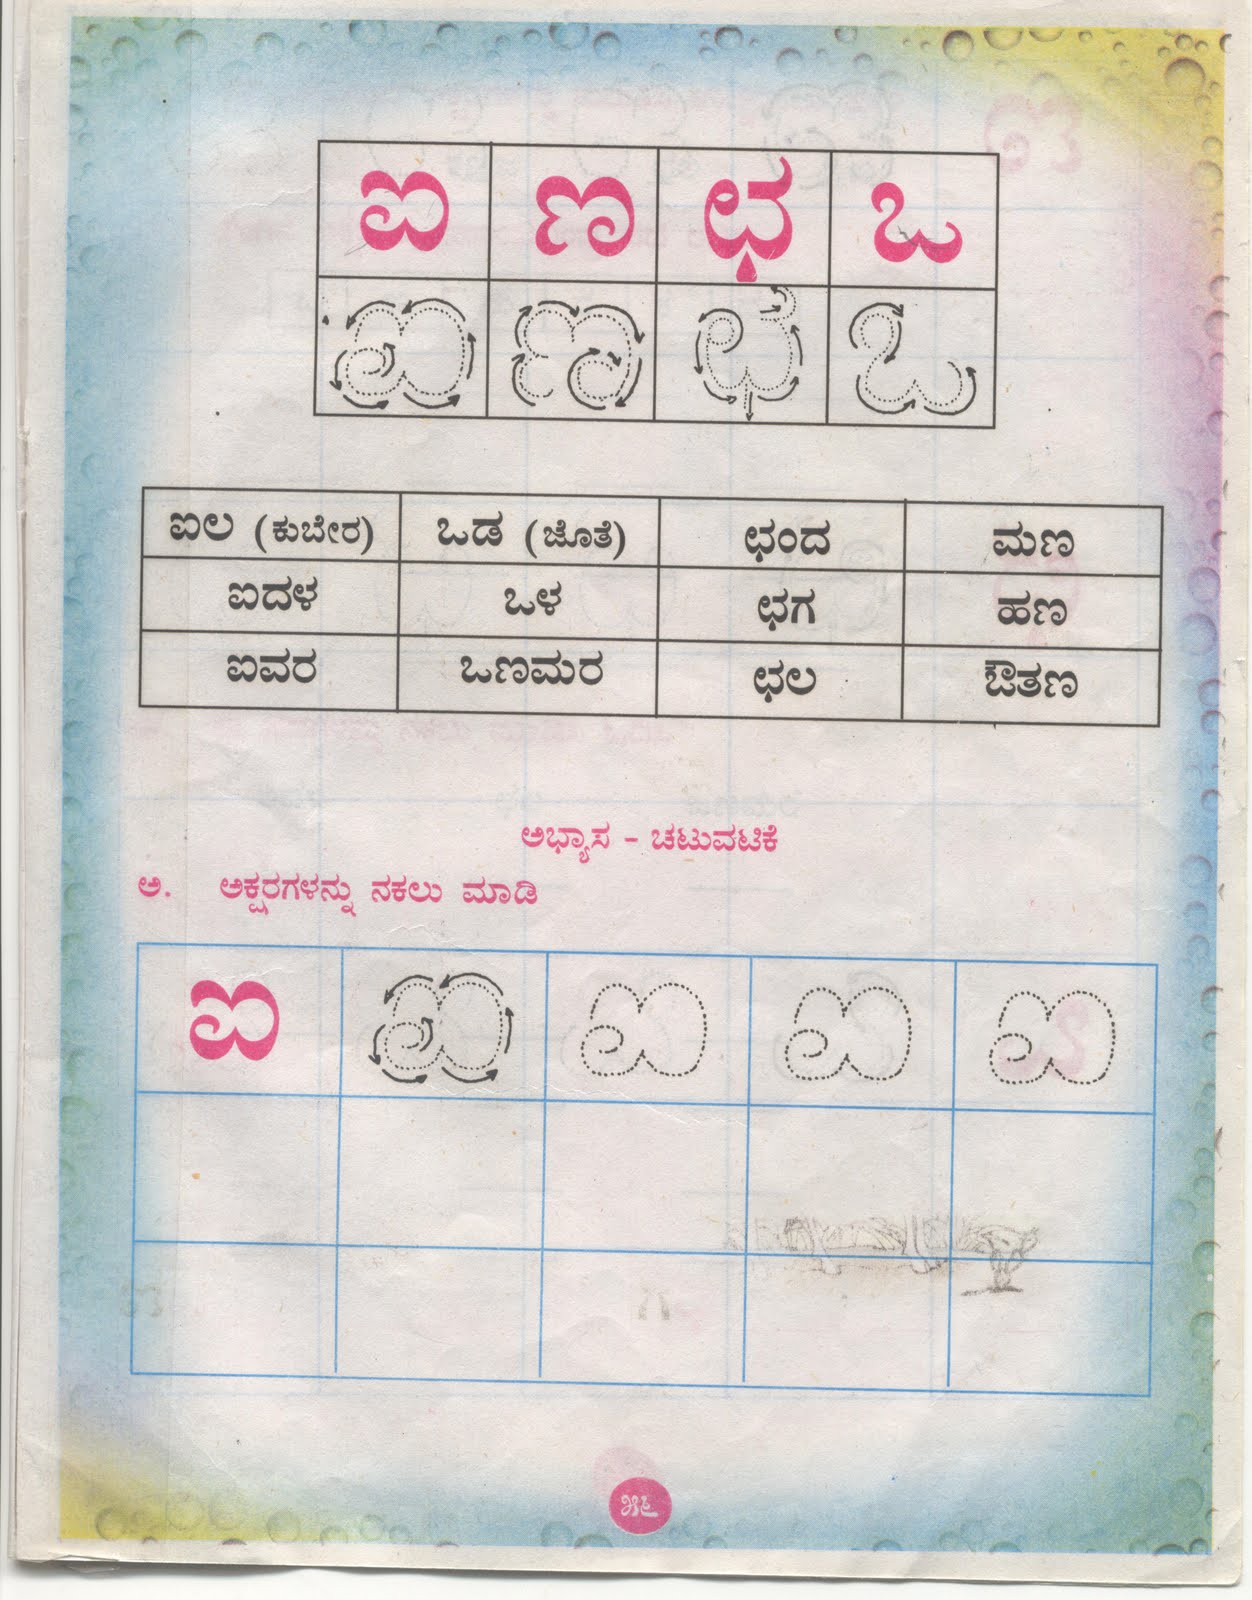 ಐ ಣ ಛ ಒ
ಐ ಣ ಛ ಒ
ಐಲ (ಕುಬೇರ) ಒಡ (ಜೊತೆ) ಛಂದ ಮಣ
ಐದಳ ಒಳ ಛಗ ಹಣ
ಐವರ ಒಣಮರ ಛಲ ಔತಣ
ಅಭ್ಯಾಸ - ಚಟುವಟಿಕೆ
ಅ. ಅಕ್ಷರಗಳನ್ನು ನಕಲು ಮಾಡಿ
ಐ ಐ ಐ ಐ ಐ